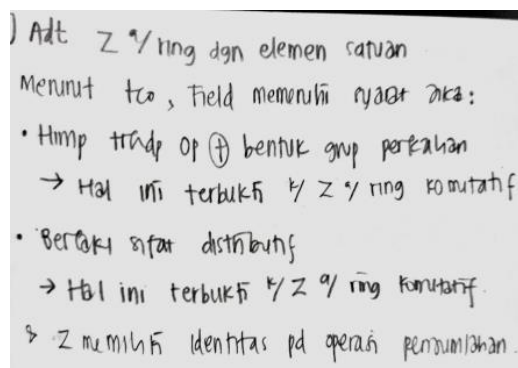 ) Adt Z a/ ring dgn elemen satuan
Menurut teo, Field memenuhi syarat jika:
• Himp trhdp op ⊕ bentuk grup perkalian
→ Hal ini terbukti k/ Z a/ ring komutatif
• Berlaku sifat distributif
→ Hal ini terbukti k/ Z a/ ring komutatif.
Z memiliki identitas pd operasi penjumlahan.